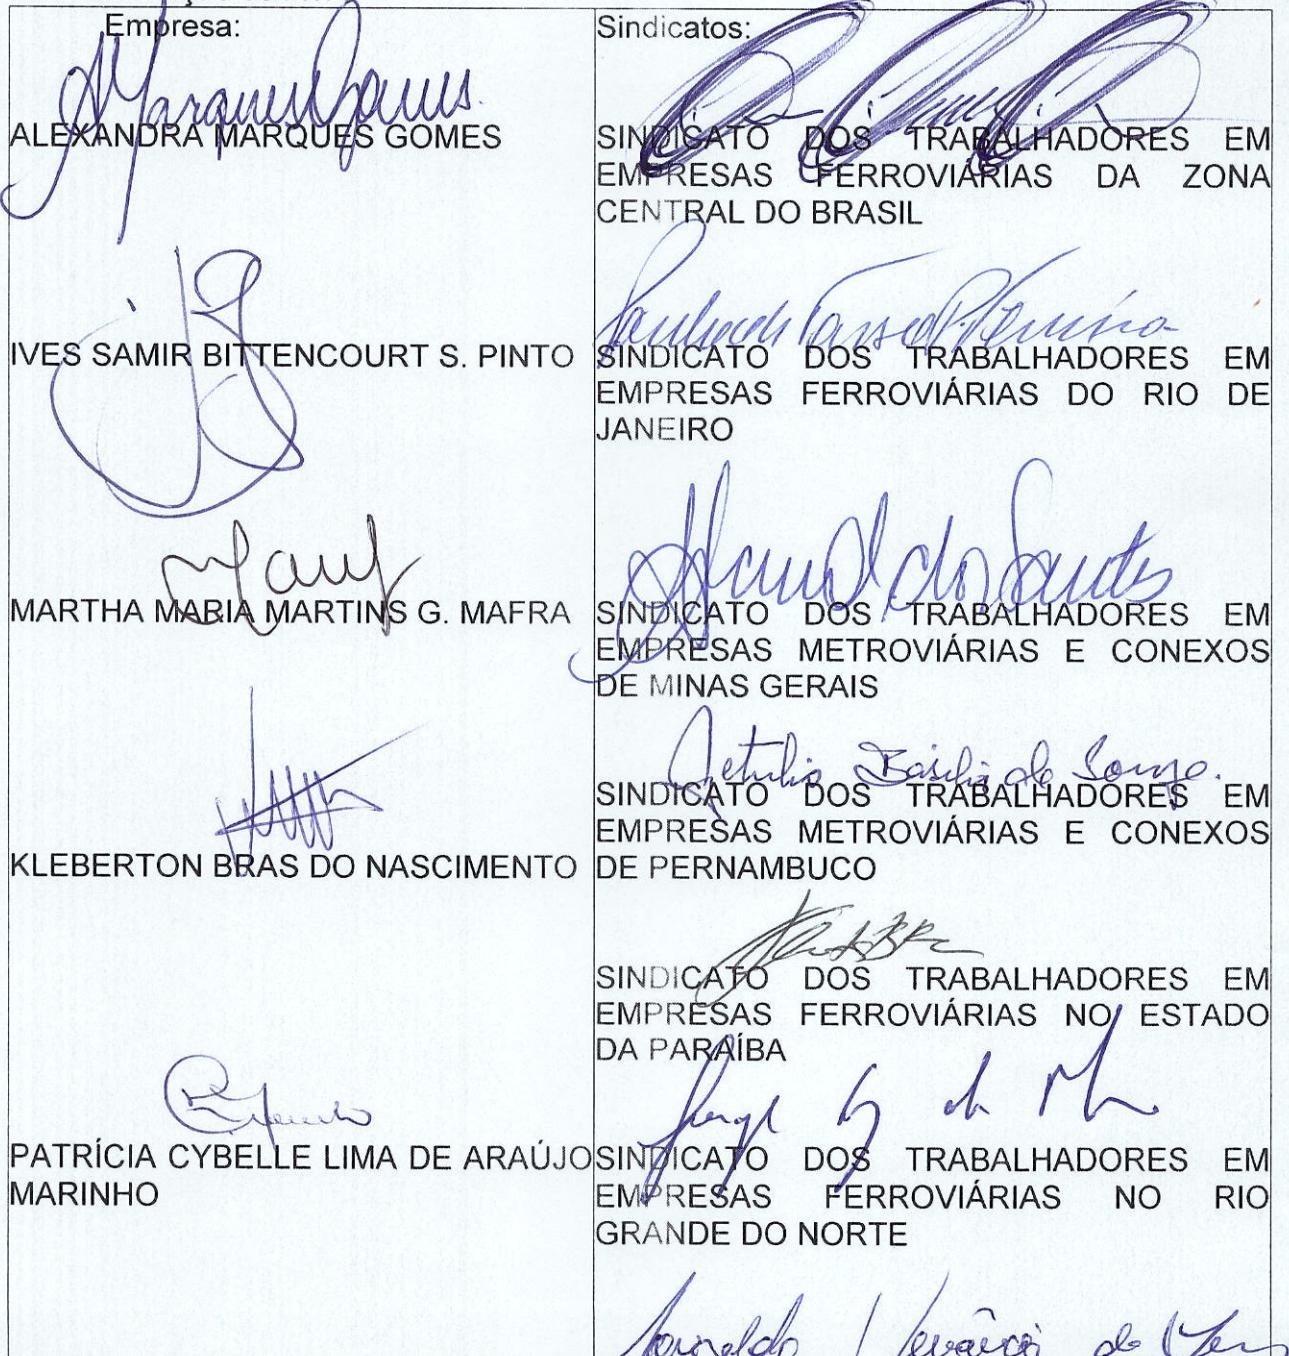 Empresa:
ALEXANDRA MARQUES GOMES
IVES SAMIR BITTENCOURT S. PINTO
MARTHA MARIA MARTINS G. MAFRA
KLEBERTON BRAS DO NASCIMENTO
PATRÍCIA CYBELLE LIMA DE ARAÚJO
MARINHO
Sindicatos:
SINDICATO DOS TRABALHADORES EM
EMPRESAS FERROVIÁRIAS DA ZONA
CENTRAL DO BRASIL
SINDICATO DOS TRABALHADORES EM
EMPRESAS FERROVIÁRIAS DO RIO DE
JANEIRO
SINDICATO DOS TRABALHADORES EM
EMPRESAS METROVIÁRIAS E CONEXOS
DE MINAS GERAIS
SINDICATO DOS TRABALHADORES EM
EMPRESAS METROVIÁRIAS E CONEXOS
DE PERNAMBUCO
SINDICATO DOS TRABALHADORES EM
EMPRESAS FERROVIÁRIAS NO ESTADO
DA PARAÍBA
SINDICATO DOS TRABALHADORES EM
EMPRESAS FERROVIÁRIAS NO RIO
GRANDE DO NORTE